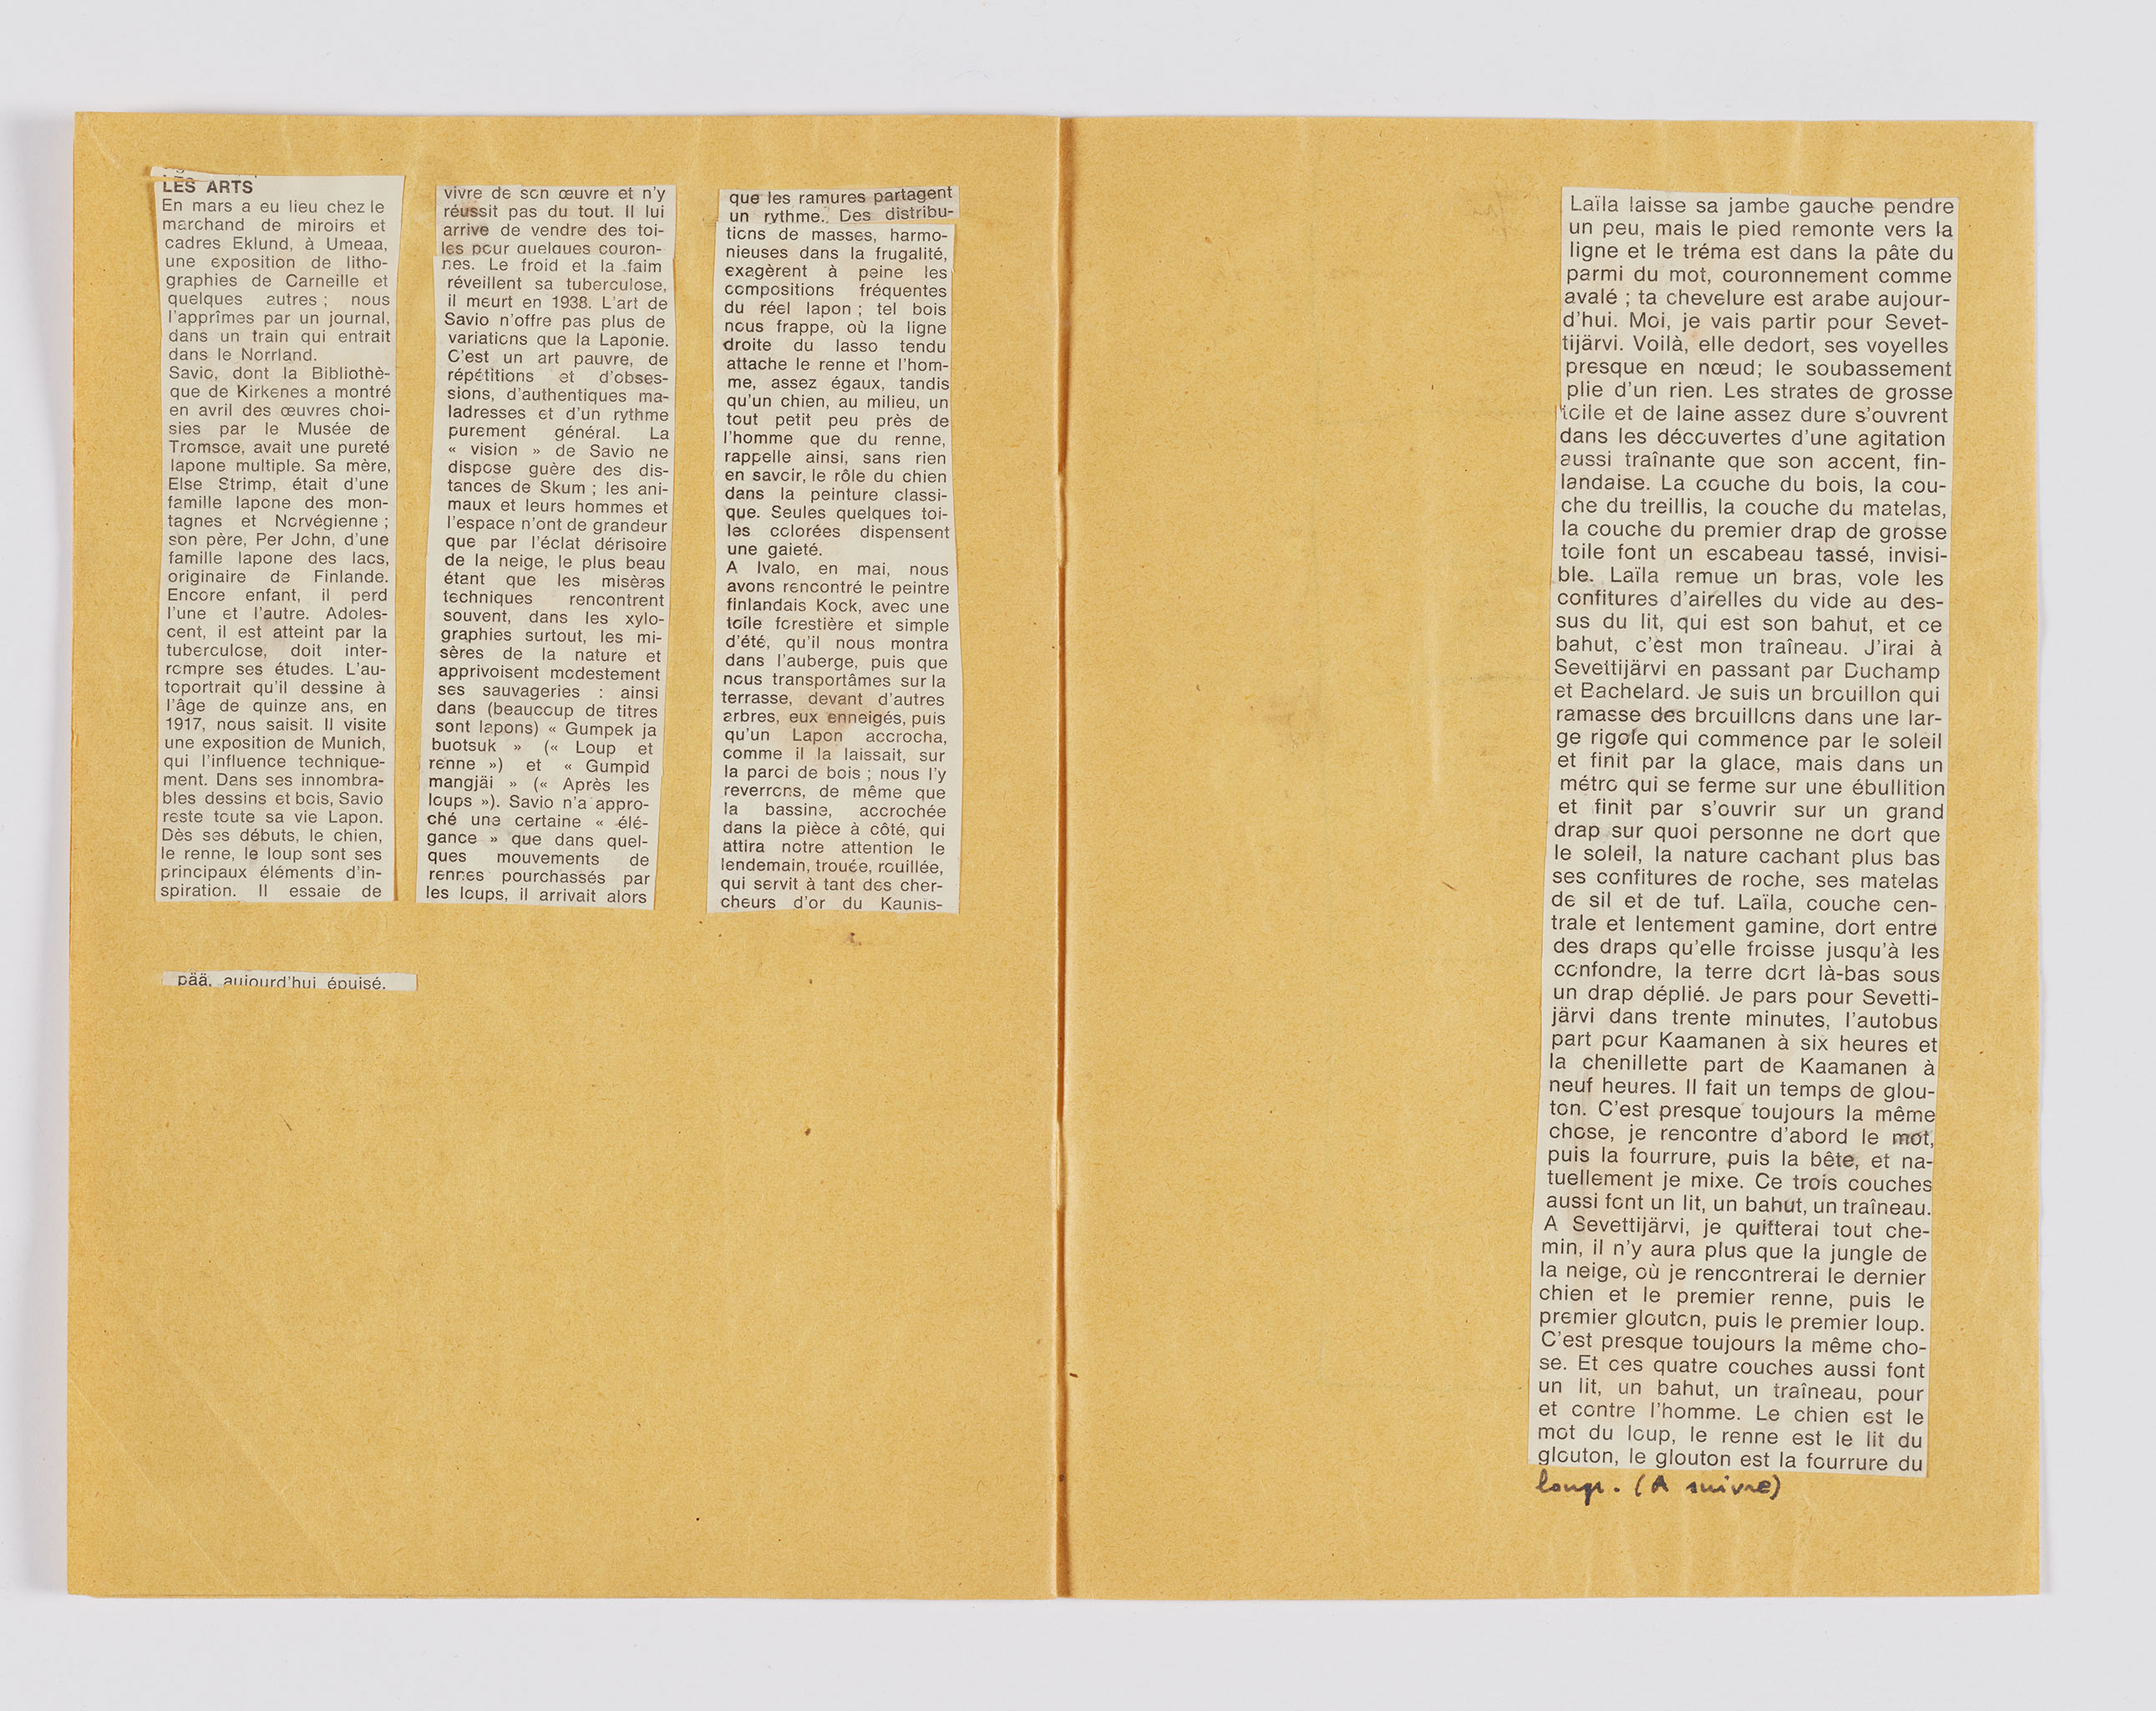 LES ARTS
En mars a eu lieu chez le
marchand de miroirs et
cadres Eklund, à Umeaa,
une exposition de litho-
graphies de Carneille et
quelques autres ; nous
l'apprîmes par un journal,
dans un train qui entrait
dans le Norrland.
Savio, dont la Bibliothè-
que de Kirkenes a montré
en avril des œuvres choi-
sies par le Musée de
Tromsoe, avait une pureté
lapone multiple. Sa mère,
Else Strimp, était d'une
famille lapone des mon-
tagnes et Norvégienne ;
son père, Per John, d'une
famille lapone des lacs,
originaire de Finlande.
Encore enfant, il perd
l'une et l'autre. Adoles-
cent, il est atteint par la
tuberculose, doit inter-
rompre ses études. L'au-
toportrait qu'il dessine à
l'âge de quinze ans, en
1917, nous saisit. Il visite
une exposition de Munich,
qui l'influence technique-
ment. Dans ses innombra-
bles dessins et bois, Savio
reste toute sa vie Lapon.
Dès ses débuts, le chien,
le renne, le loup sont ses
principaux éléments d'in-
spiration. Il essaie de
vivre de son œuvre et n'y
réussit pas du tout. Il lui
arrive de vendre des toi-
les pour quelques couron-
nes. Le froid et la faim
réveillent sa tuberculose,
il meurt en 1938. L'art de
Savio n'offre pas plus de
variations que la Laponie.
C'est un art pauvre, de
répétitions et d'obses-
sions, d'authentiques ma-
ladresses et d'un rythme
purement général. La
« vision » de Savio ne
dispose guère des dis-
tances de Skum ; les ani-
maux et leurs hommes et
l'espace n'ont de grandeur
que par l'éclat dérisoire
de la neige, le plus beau
étant que les misères
techniques rencontrent
souvent, dans les xylo-
graphies surtout, les mi-
sères de la nature et
apprivoisent modestement
ses sauvageries : ainsi
dans (beaucoup de titres
sont lapons) « Gumpek ja
buotsuk » (« Loup et
renne ») et « Gumpid
mangjäi » (« Après les
loups »). Savio n'a appro-
ché une certaine « élé-
gance » que dans quel-
ques mouvements de
rennes pourchassés par
les loups, il arrivait alors
que les ramures partagent
un rythme. Des distribu-
tions de masses, harmo-
nieuses dans la frugalité,
exagèrent à peine les
compositions fréquentes
du réel lapon ; tel bois
nous frappe, où la ligne
droite du lasso tendu
attache le renne et l'hom-
me, assez égaux, tandis
qu'un chien, au milieu, un
tout petit peu près de
l'homme que du renne,
rappelle ainsi, sans rien
en savoir, le rôle du chien
dans la peinture classi-
que. Seules quelques toi-
les colorées dispensent
une gaieté.
A Ivalo, en mai, nous
avons rencontré le peintre
finlandais Kock, avec une
toile forestière et simple
d'été, qu'il nous montra
dans l'auberge, puis que
nous transportâmes sur la
terrasse, devant d'autres
arbres, eux enneigés, puis
qu'un Lapon accrocha,
comme il la laissait, sur
la paroi de bois ; nous l'y
reverrons, de même que
la bassine, accrochée
dans la pièce à côté, qui
attira notre attention le
lendemain, trouée, rouillée,
qui servit à tant des cher-
cheurs d'or du Kaunis-
pää, aujourd'hui épuisé.
Laïla laisse sa jambe gauche pendre
un peu, mais le pied remonte vers la
ligne et le tréma est dans la pâte du
parmi du mot, couronnement comme
avalé ; ta chevelure est arabe aujour-
d'hui. Moi, je vais partir pour Sevet-
tijärvi. Voilà, elle dedort, ses voyelles
presque en nœud; le soubassement
plie d'un rien. Les strates de grosse
toile et de laine assez dure s'ouvrent
dans les découvertes d'une agitation
aussi traînante que son accent, fin-
landaise. La couche du bois, la cou-
che du treillis, la couche du matelas,
la couche du premier drap de grosse
toile font un escabeau tassé, invisi-
ble. Laïla remue un bras, vole les
confitures d'airelles du vide au des-
sus du lit, qui est son bahut, et ce
bahut, c'est mon traîneau. J'irai à
Sevettijärvi en passant par Duchamp
et Bachelard. Je suis un brouillon qui
ramasse des brouillons dans une lar-
ge rigole qui commence par le soleil
et finit par la glace, mais dans un
métro qui se ferme sur une ébullition
et finit par s'ouvrir sur un grand
drap sur quoi personne ne dort que
le soleil, la nature cachant plus bas
ses confitures de roche, ses matelas
de sil et de tuf. Laïla, couche cen-
trale et lentement gamine, dort entre
des draps qu'elle froisse jusqu'à les
confondre, la terre dort là-bas sous
un drap déplié. Je pars pour Sevetti-
järvi dans trente minutes, l'autobus
part pour Kaamanen à six heures et
la chenillette part de Kaamanen à
neuf heures. Il fait un temps de glou-
ton. C'est presque toujours la même
chose, je rencontre d'abord le mot,
puis la fourrure, puis la bête, et na-
tuellement je mixe. Ce trois couches
aussi font un lit, un bahut, un traîneau.
A Sevettijärvi, je quitterai tout che-
min, il n'y aura plus que la jungle de
la neige, où je rencontrerai le dernier
chien et le premier renne, puis le
premier glouton, puis le premier loup.
C'est presque toujours la même cho-
se. Et ces quatre couches aussi font
un lit, un bahut, un traîneau, pour
et contre l'homme. Le chien est le
mot du loup, le renne est le lit du
glouton, le glouton est la fourrure du
loup. (A suivre)